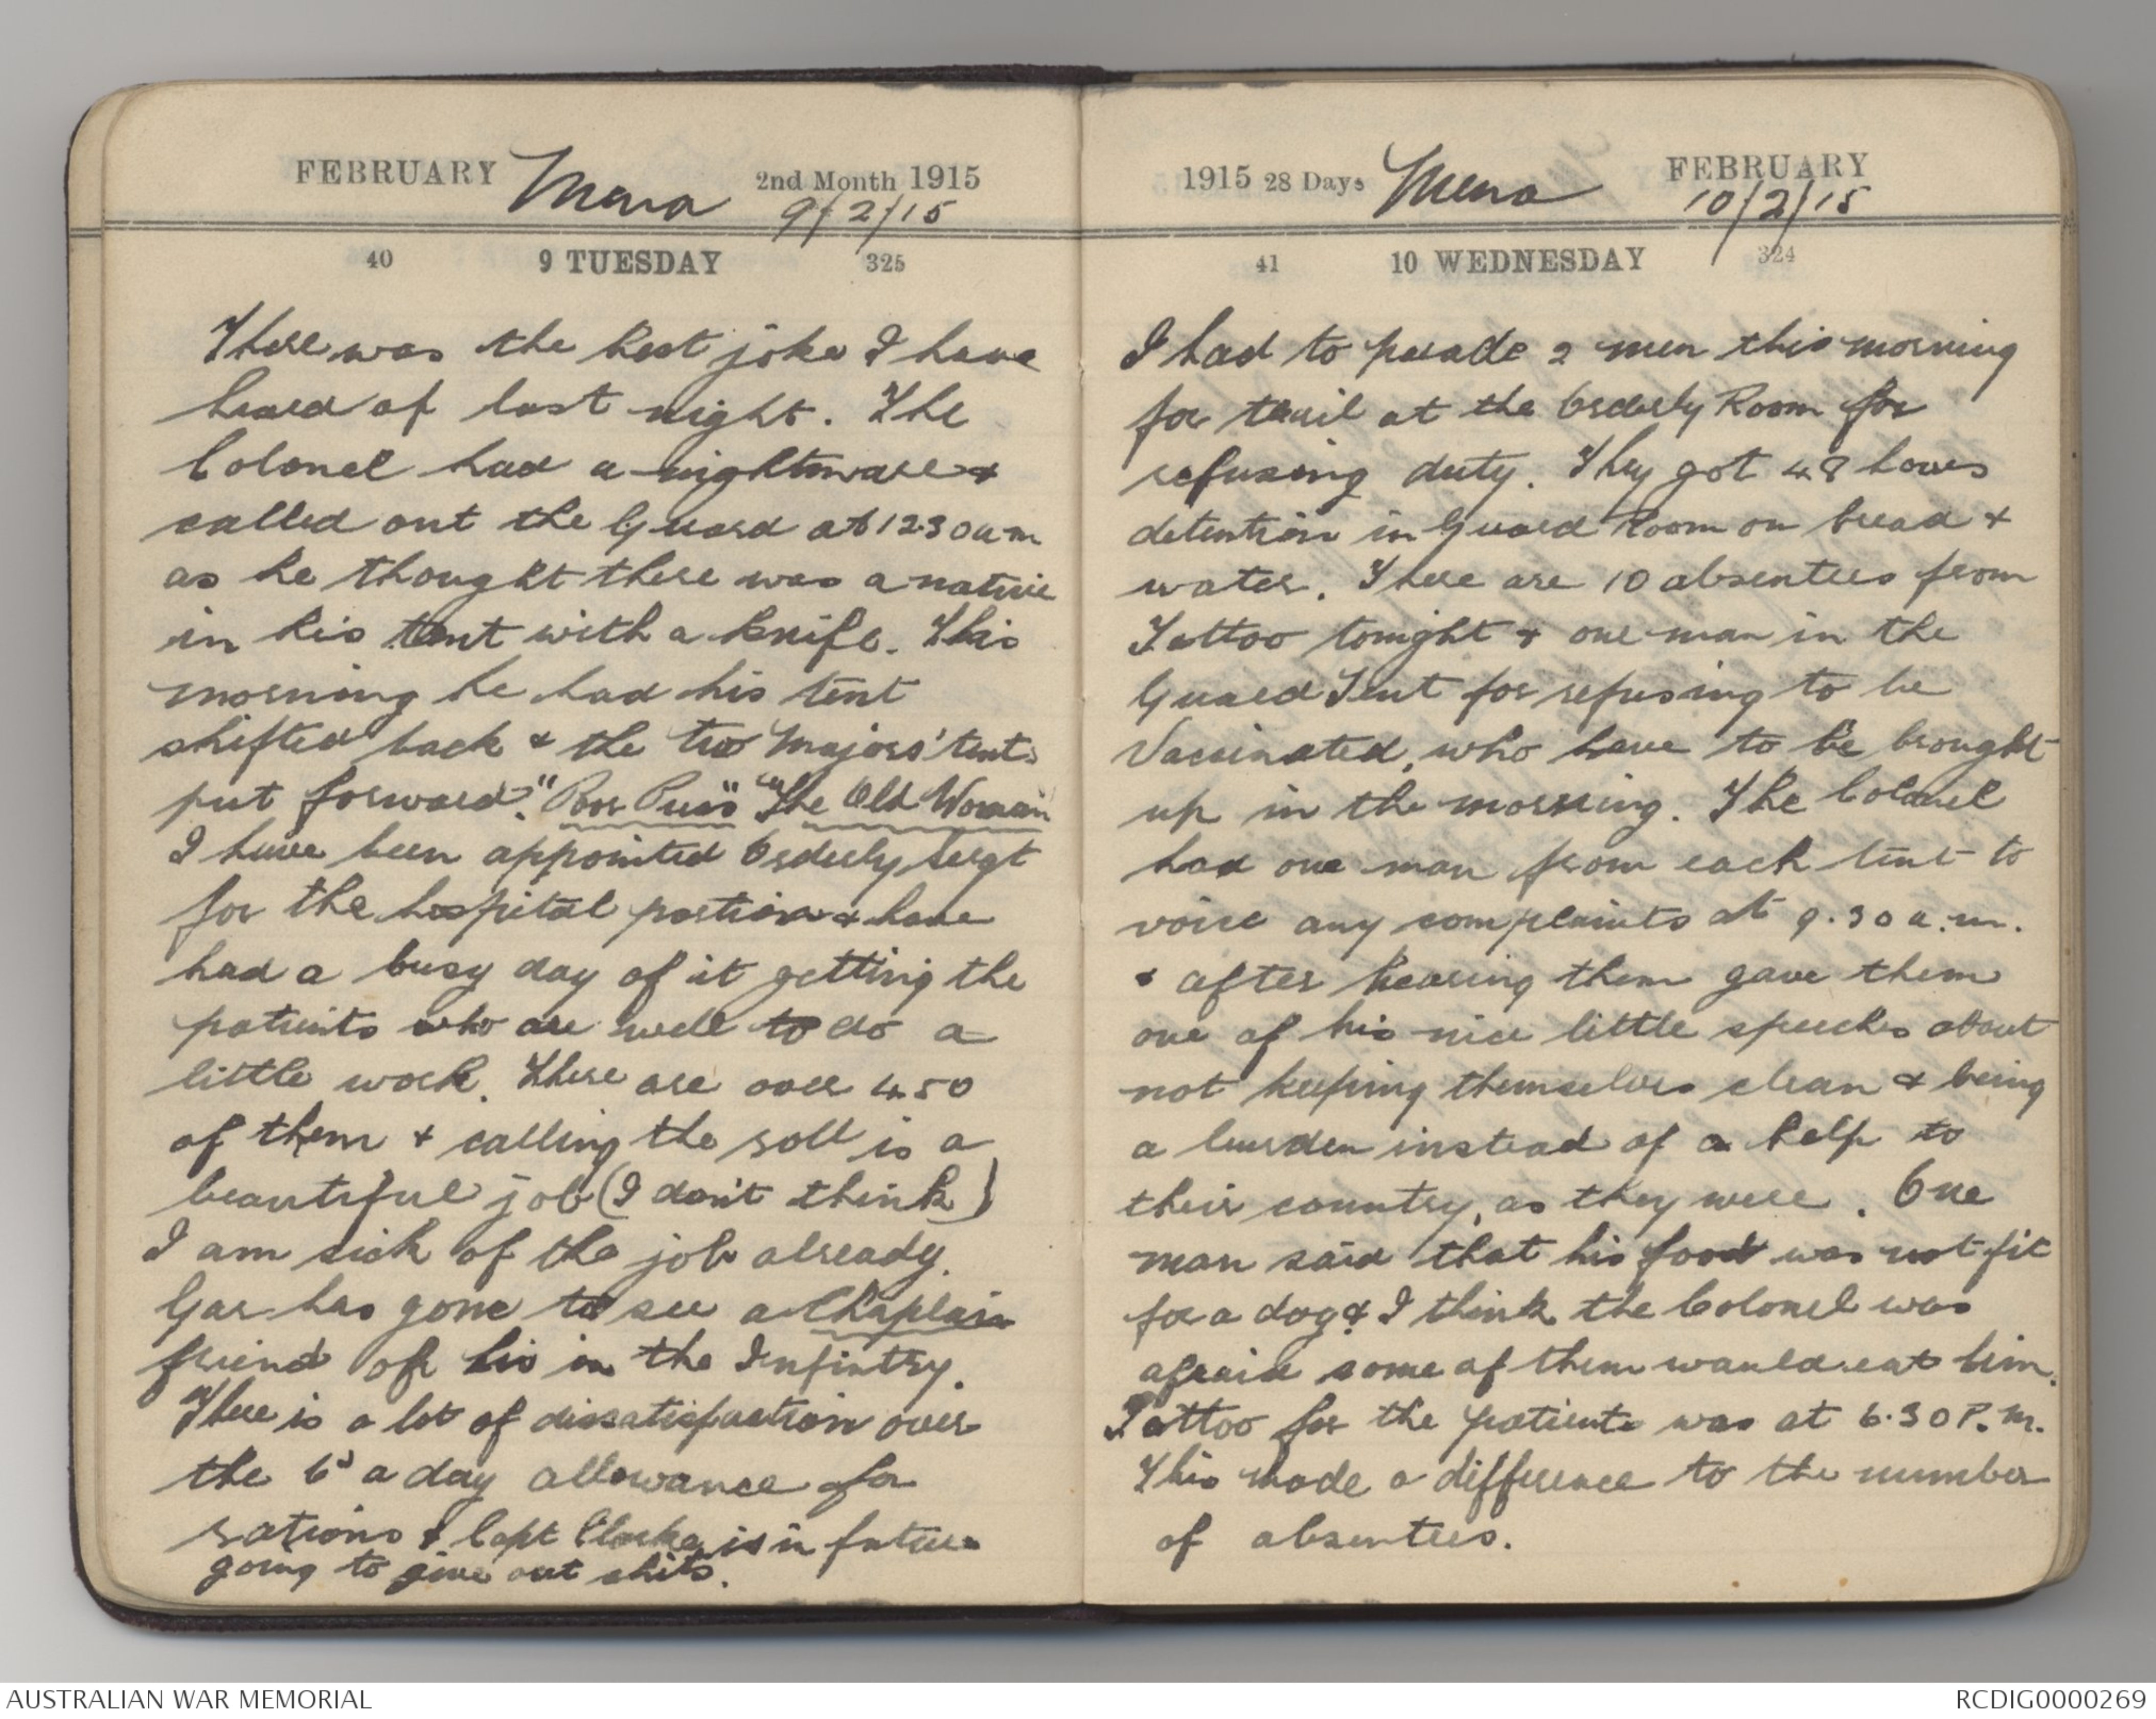 FEBRUARY Mena 2nd Month 1915
9/2/15
40 9 TUESDAY 325
There was the best joke I have
heard of last night. The
Colonel had a nightmare &
called out the Guard at 12.30 am
as he thought there was a native
in his tent with a knife. This
morning he had his tent
shifted back & the two Majors' tents
put forward. "Poor Puss" "The Old Woman
I have been appointed Orderly Sergt
for the hospital portion & have
had a busy day of it getting the
patients who are well to do a
little work. There are over 450
of them & calling the roll is a
beautiful job (I don't think)
I am sick of the job already.
Gar has gone to see a Chaplain
friend of his in the Infintry.
There is a lot of dissatisfaction over
the 6d a day allowance for
rations & Capt Clarke is in future
going to give out chits.
1915 28 Days Mena FEBRUARY
10/2/15
41 10 WEDNESDAY 324
I had to parade 2 men this morning
for trail at the Orderly Room for
refusing duty. They got 48 hours
detention in Guard Room on bread &
water. There are 10 absentees from
Tattoo tonight & one man in the
Guard Tent for refusing to be
Vaccinated, who have to be brought
up in the morning. The Colonel
had one man from each tent to
voice any complaints at 9.30 a.m.
& after hearing them gave them
one of his nice little speeches about
not keeping themselves clean & being
a burden instead of a help to
their country, as they were. One
man said that his food was not fit
for a dog & I think the Colonel was
afraid some of them would eat him.
Tattoo for the patients was at 6.30 P.M.
This made a difference to the number
of absentees.
AUSTRALIAN WAR MEMORIAL
RCDIG0000269